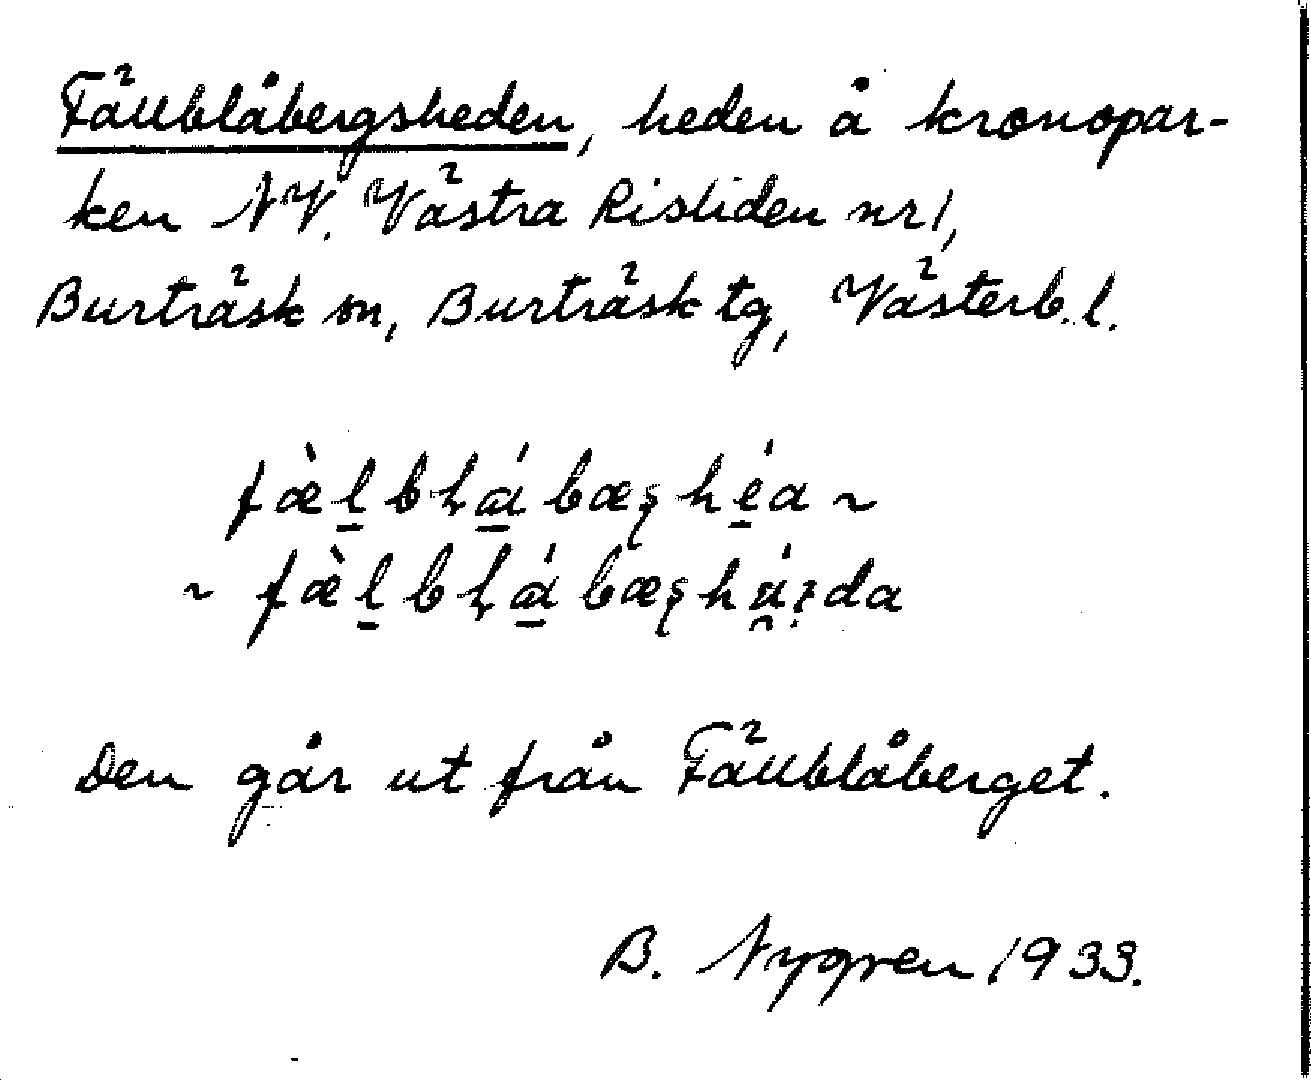 Fällblåbergsheden, heden å kronopar-
ken NV. Västra Risliden nr 1,
Burträsk sn, Burträsk tg, Västerb. l.
Den går ut från Fällblåberget.
B. Nygren 1933.